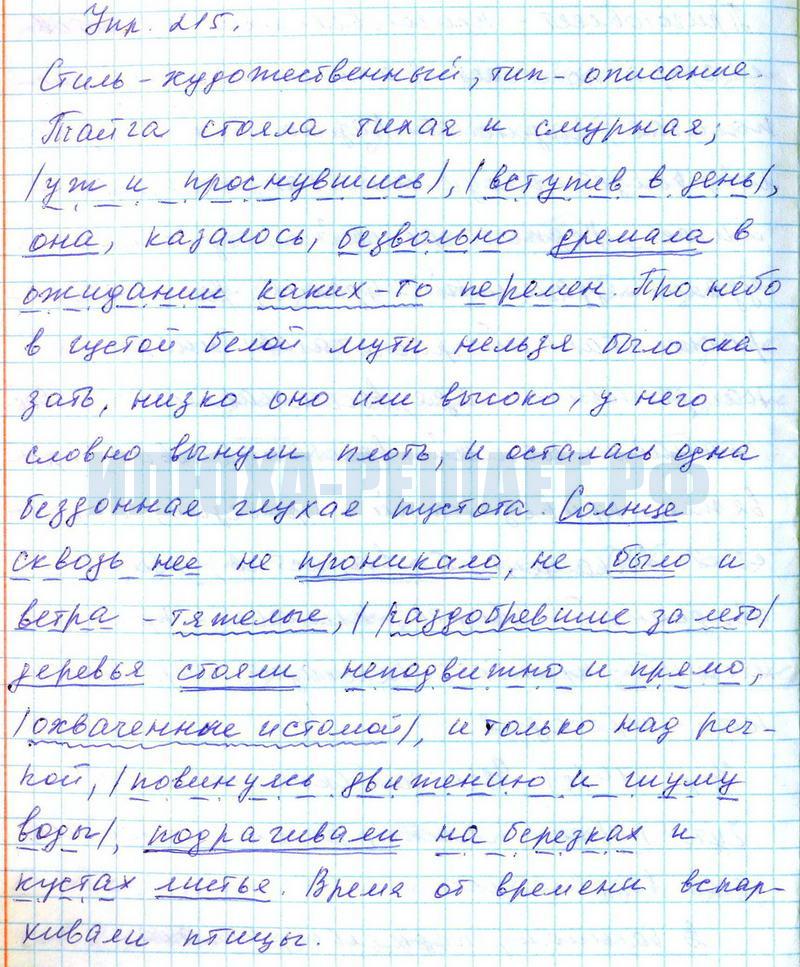 Упр. 215.
Стиль - художественный, тип - описание.
Тайга стояла тихая и смурная;
/уж и проснувшись/, /вступив в день/,
она, казалось, безвольно дремала в
ожидании каких-то перемен. Про небо
в густой белой мути нельзя было ска-
зать, низко оно или высоко, у него
словно вынули плоть, и осталась одна
бездонная глухая пустота. Солнце
сквозь нее не проникало, не было и
ветра - тяжелые, /раздобревшие за лето/
деревья стояли неподвижно и прямо,
/охваченные истомой/, и только над реч-
кой, /повинуясь движению и шуму
воды/, подрагивали на березках и
кустах листья. Время от времени вспар-
хивали птицы.
ИЛЮХА-РЕШАЕТ.РФ